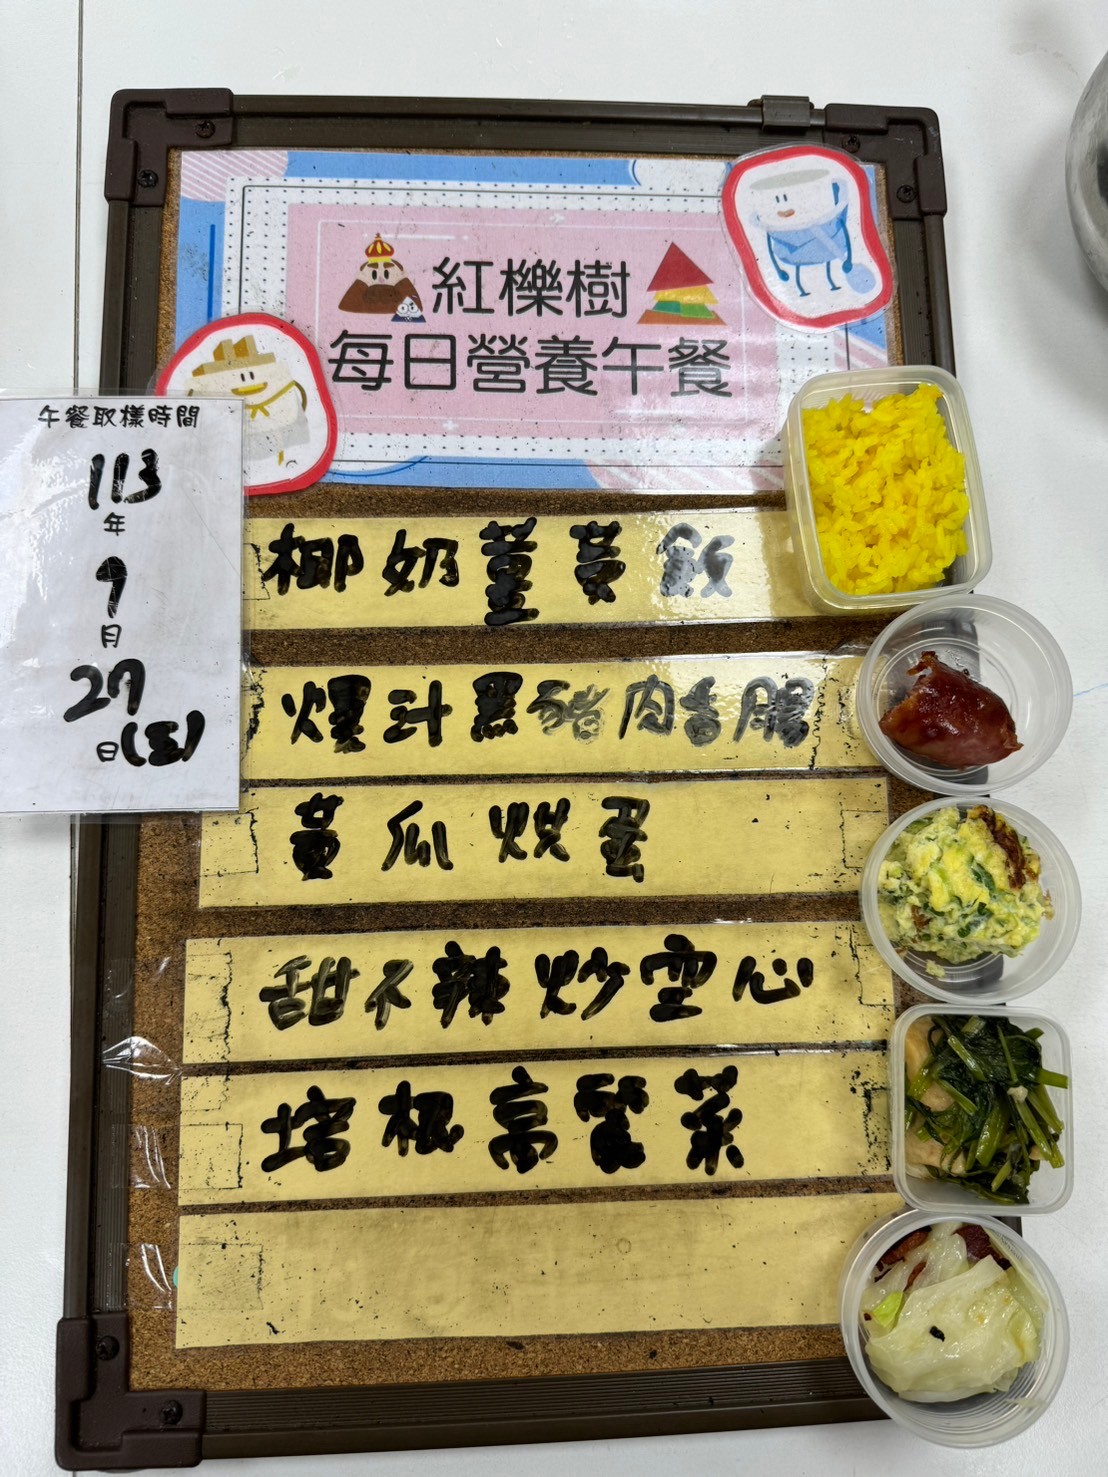 紅櫟樹
每日營養午餐
午餐取樣時間
113
年
9
月
27
日(五)
椰奶薑黃飯
爆汁黑豬肉香腸
黃瓜烘蛋
甜不辣炒空心
培根高麗菜